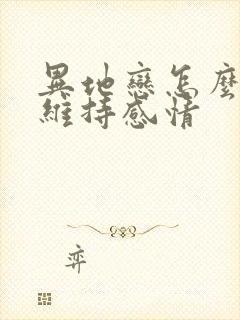 異地戀怎麼
維持感情
弈